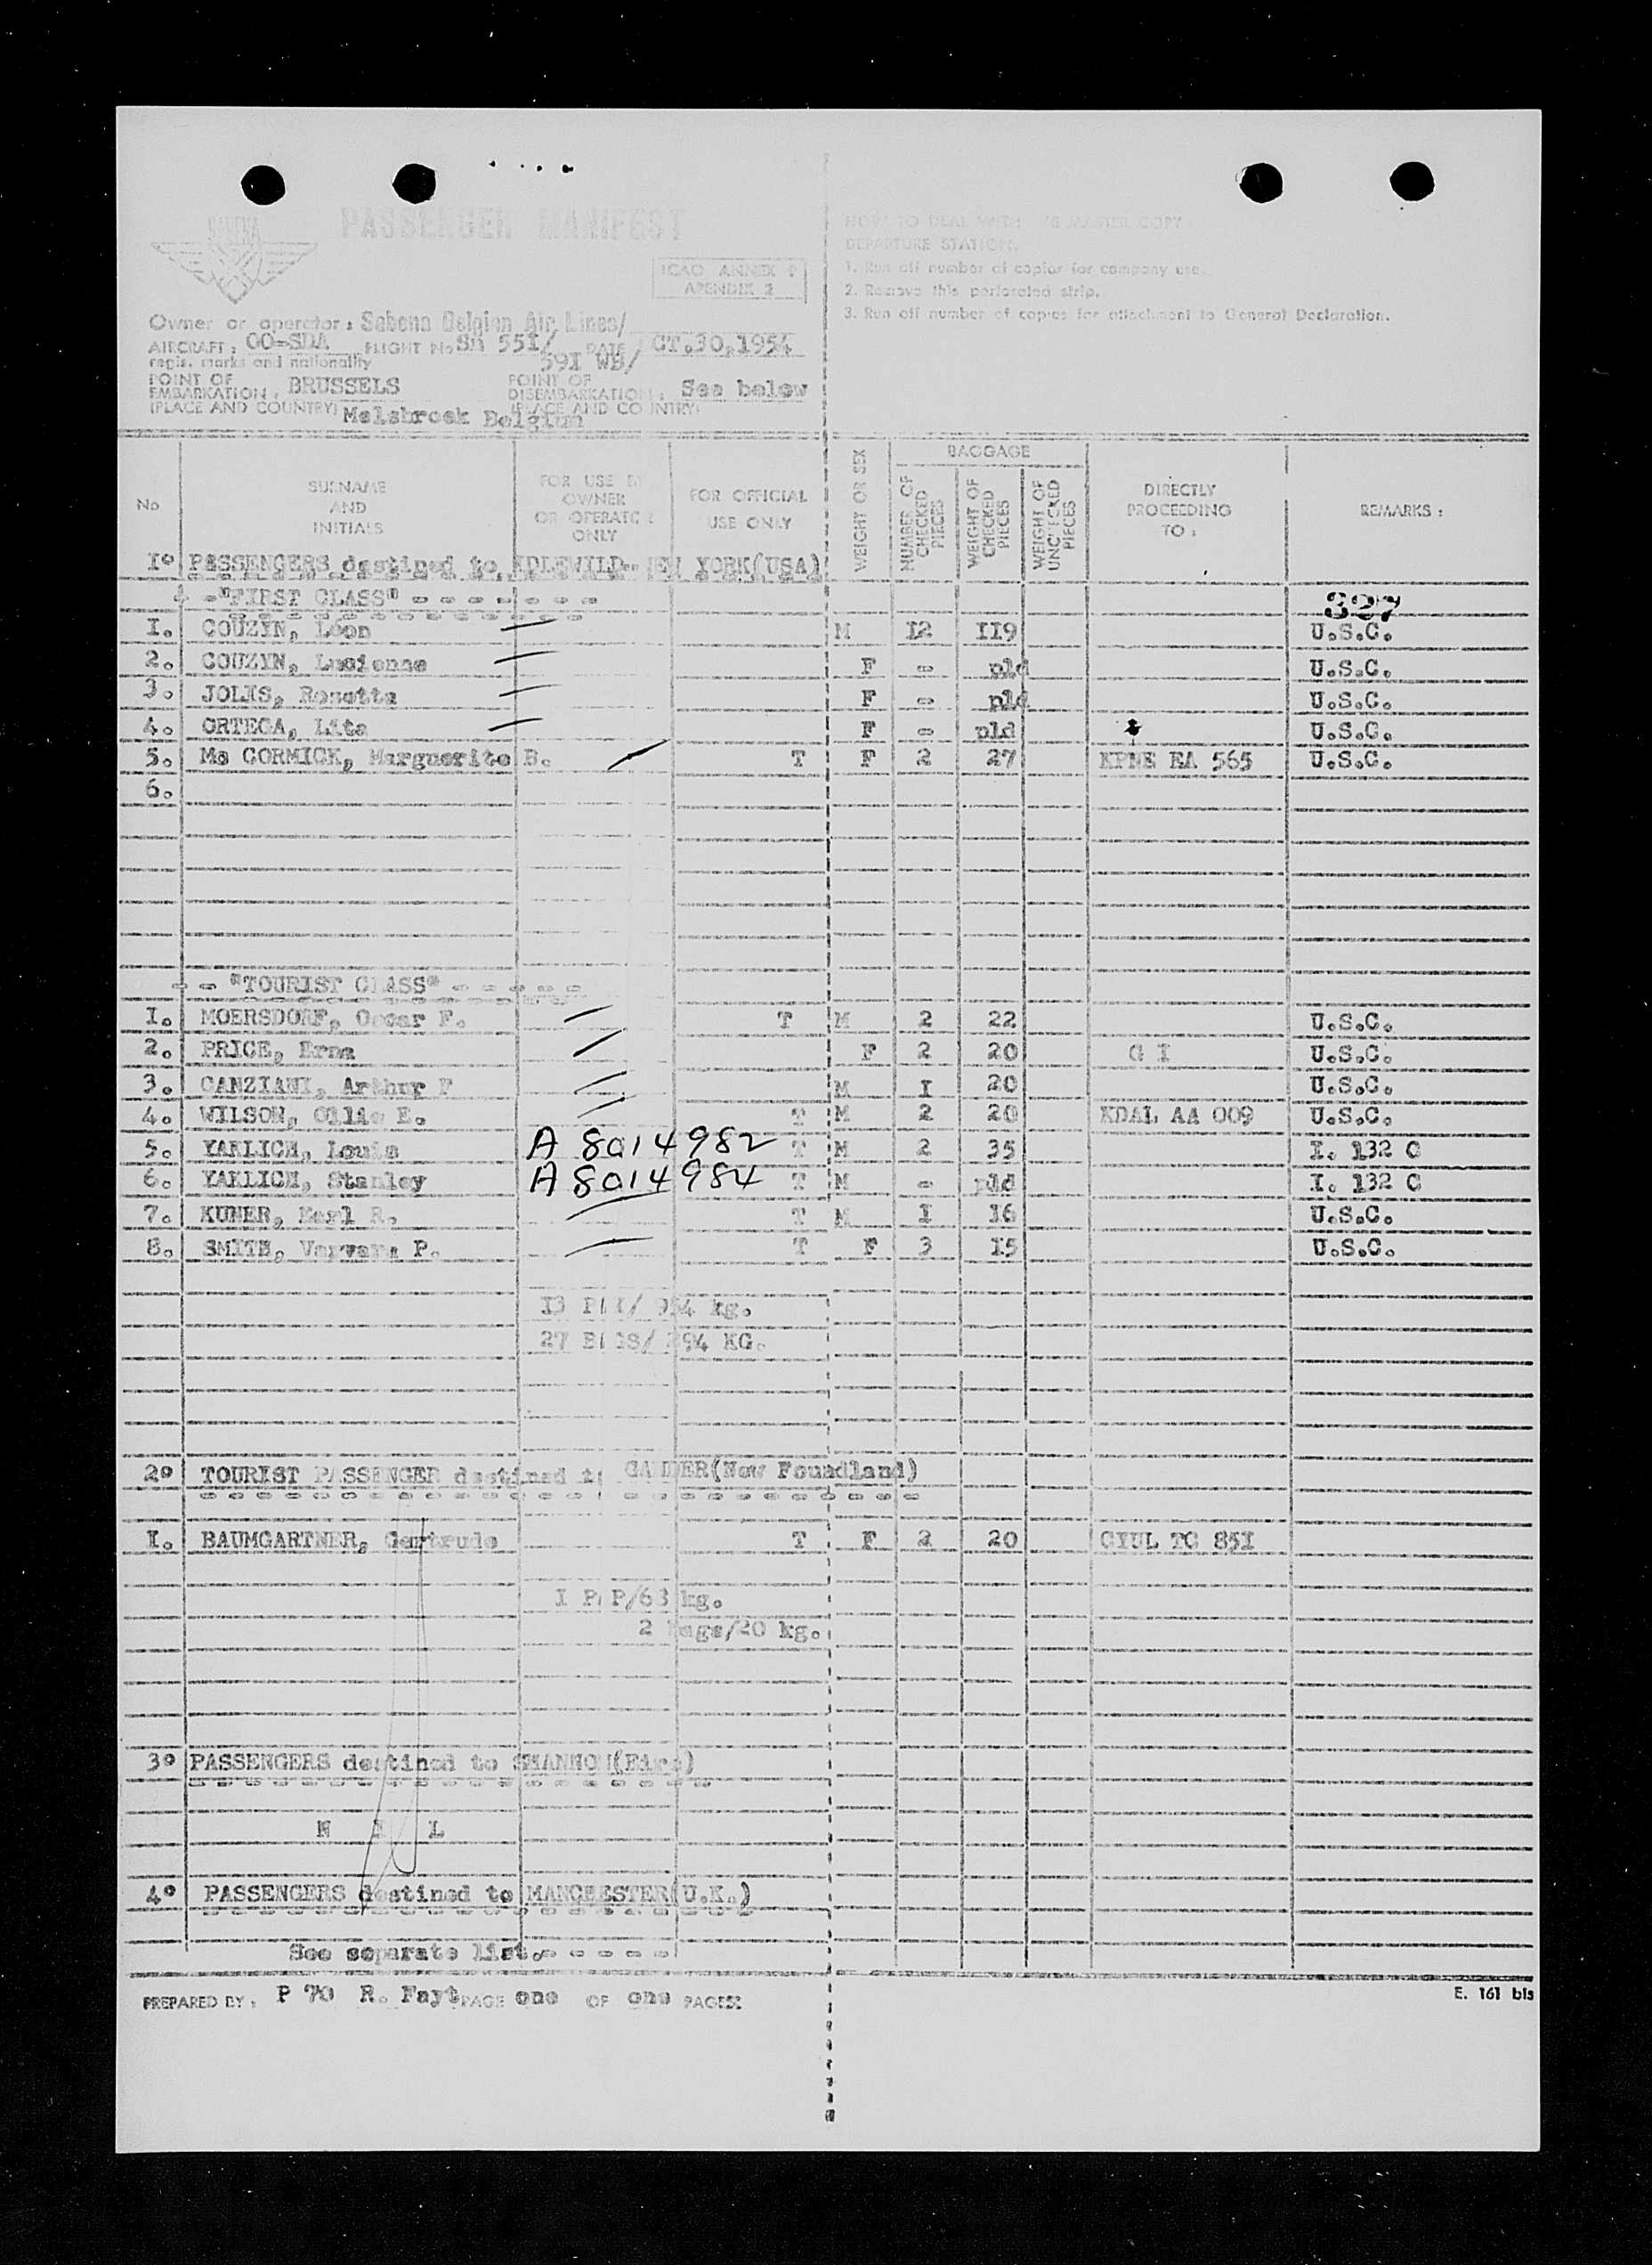 SABENA
PASSENGER MANIFEST
ICAO ANNEX 9
APENDIX 2
HOW TO DEAL WITH MASTER COPY
DEPARTURE STATION.
1. Run off number of copies for company use.
2. Remove this perforated strip.
3. Run off number of copies for attachment to General Declaration.
Owner or operator : Sabena Belgian Air Lines/
AIRCRAFT : OO-SDA FLIGHT No Sn 551/ 591 WB/ DATE CT.30,1954
regis. marks and nationality
POINT OF EMBARKATION : BRUSSELS POINT OF DISEMBARKATION : See below
(PLACE AND COUNTRY) Melsbroek Belgium (PLACE AND COUNTRY)
No SURNAME AND INITIALS FOR USE BY OWNER OR OPERATOR ONLY FOR OFFICIAL USE ONLY WEIGHT OR SEX BAGGAGE NUMBER OF CHECKED PIECES WEIGHT OF CHECKED PIECES WEIGHT OF UNCHECKED PIECES DIRECTLY PROCEEDING TO : REMARKS :
1° PASSENGERS destined to IDLEWILD- NEW YORK(USA)
- -"FIRST CLASS" - - - - - - - 327
I. COUZYN, Léon M I2 II9 U.S.C.
2. COUZYN, Lucienne F - pld U.S.C.
3. JOLIS, Rosette F - pld U.S.C.
4. ORTEGA, Lita F - pld U.S.C.
5. Mc CORMICK, Marguerite B. T F 2 27 KPNE EA 565 U.S.C.
6.
- - "TOURIST CLASS" - - - - -
I. MOERSDORF, Oscar F. T M 2 22 U.S.C.
2. PRICE, Erna F 2 20 G I U.S.C.
3. CANZIANI, Arthur F M I 20 U.S.C.
4. WILSON, Ollie E. T M 2 20 KDAL AA 009 U.S.C.
5. YARLICH, Louis A 8014982 T M 2 35 I. 132 C
6. YARLICH, Stanley A 8014984 T M - pld I. 132 C
7. KUNER, Earl R. T M I 16 U.S.C.
8. SMITH, Varvara P. T F 3 I5 U.S.C.
13 PAX/ 954 kg.
27 BAGS/ 294 KG.
2° TOURIST PASSENGER destined to GANDER(New Foundland)
I. BAUMGARTNER, Gertrude T F 2 20 CYUL TC 85I
I P P/63 kg.
2 Bags/20 kg.
3° PASSENGERS destined to SHANNON(Eire)
N I L
4° PASSENGERS destined to MANCHESTER(U.K.)
See separate list.- - - - -
PREPARED BY : P 70 R. Fayt PAGE one OF one PAGES
E. 161 bis